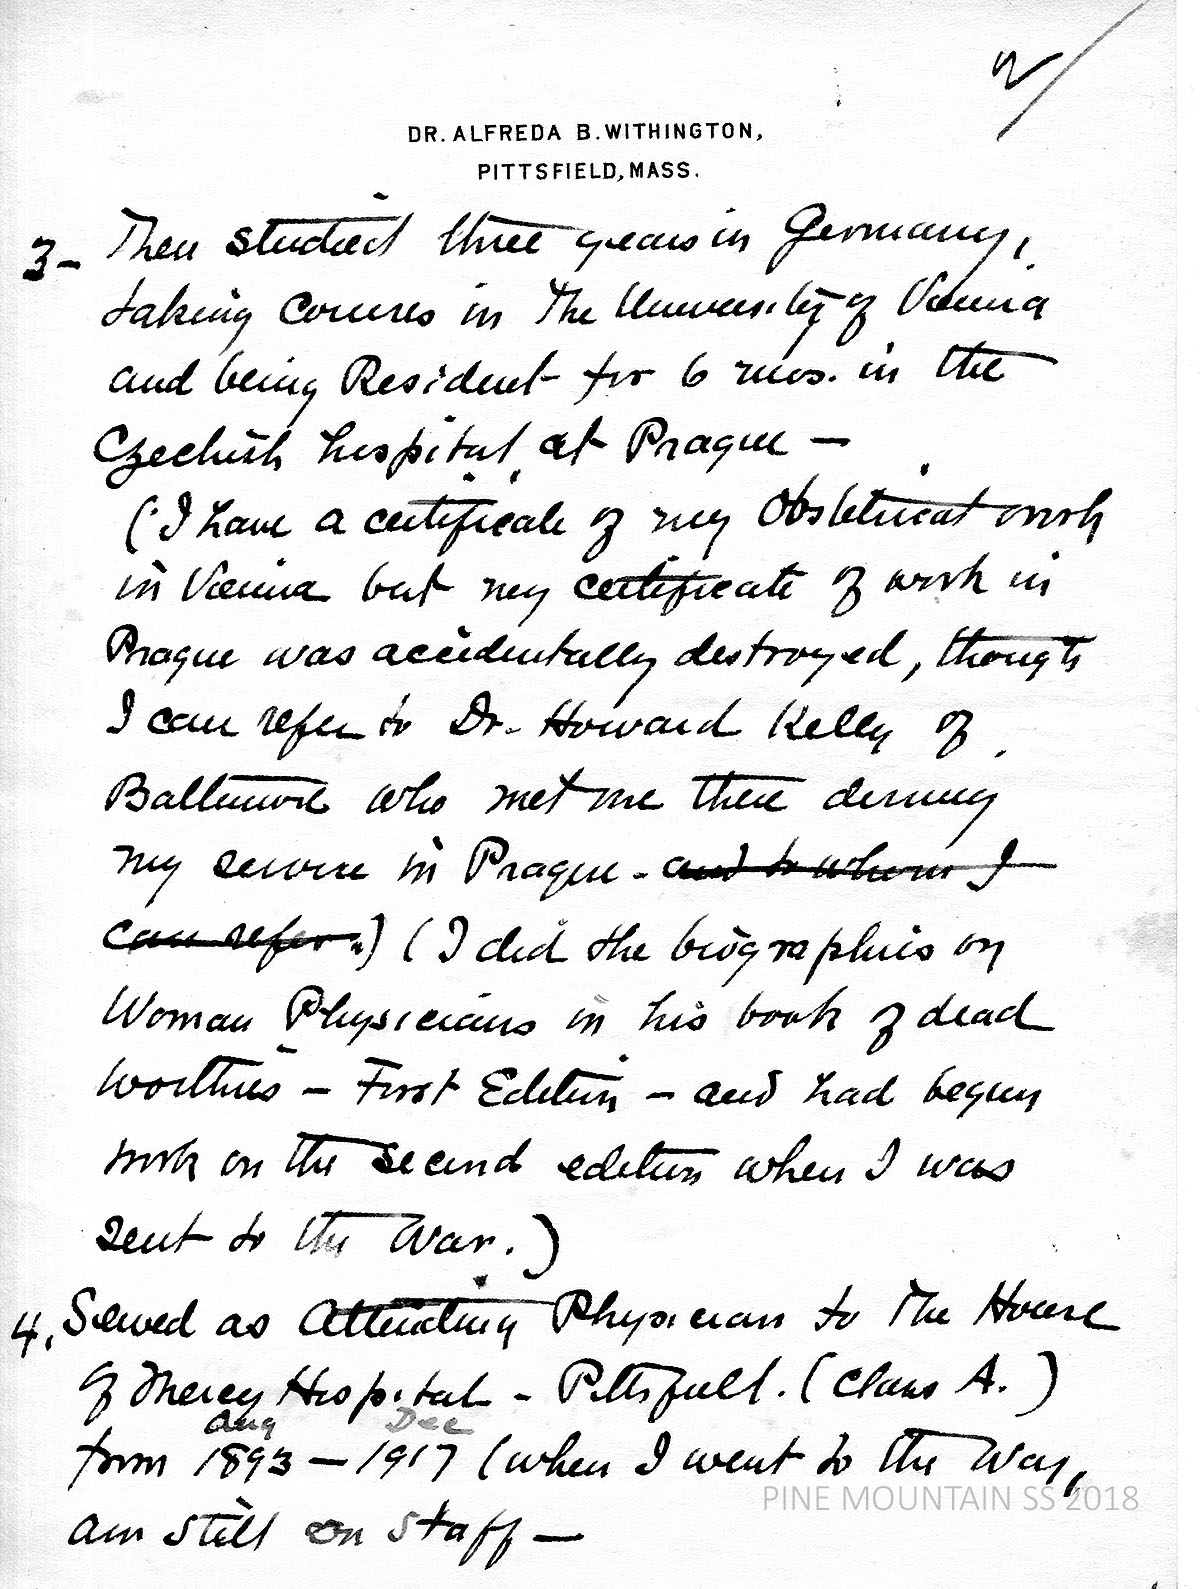 2/
DR. ALFREDA B. WITHINGTON,
PITTSFIELD, MASS.
3- Then studied three years in Germany,
taking courses in The University of Vienna
and being Resident for 6 mos. in the
Czechish hospital, at Prague —
(I have a certificate of my Obstetrical work
in Vienna but my certificate of work in
Prague was accidentally destroyed, though
I can refer to Dr. Howard Kelly of
Baltimore who met me there during
my service in Prague - and to whom I
can refer.) (I did the biographies on
Woman Physicians in his book of dead
worthies — First Edition — and had begun
work on the second edition when I was
sent to the War.)
4. Served as Attending Physician to The House
of Mercy Hospital - Pittsfield. (Class A.)
Aug Dec
from 1893 — 1917 (when I went to the War,
am still on Staff —
PINE MOUNTAIN SS 2018